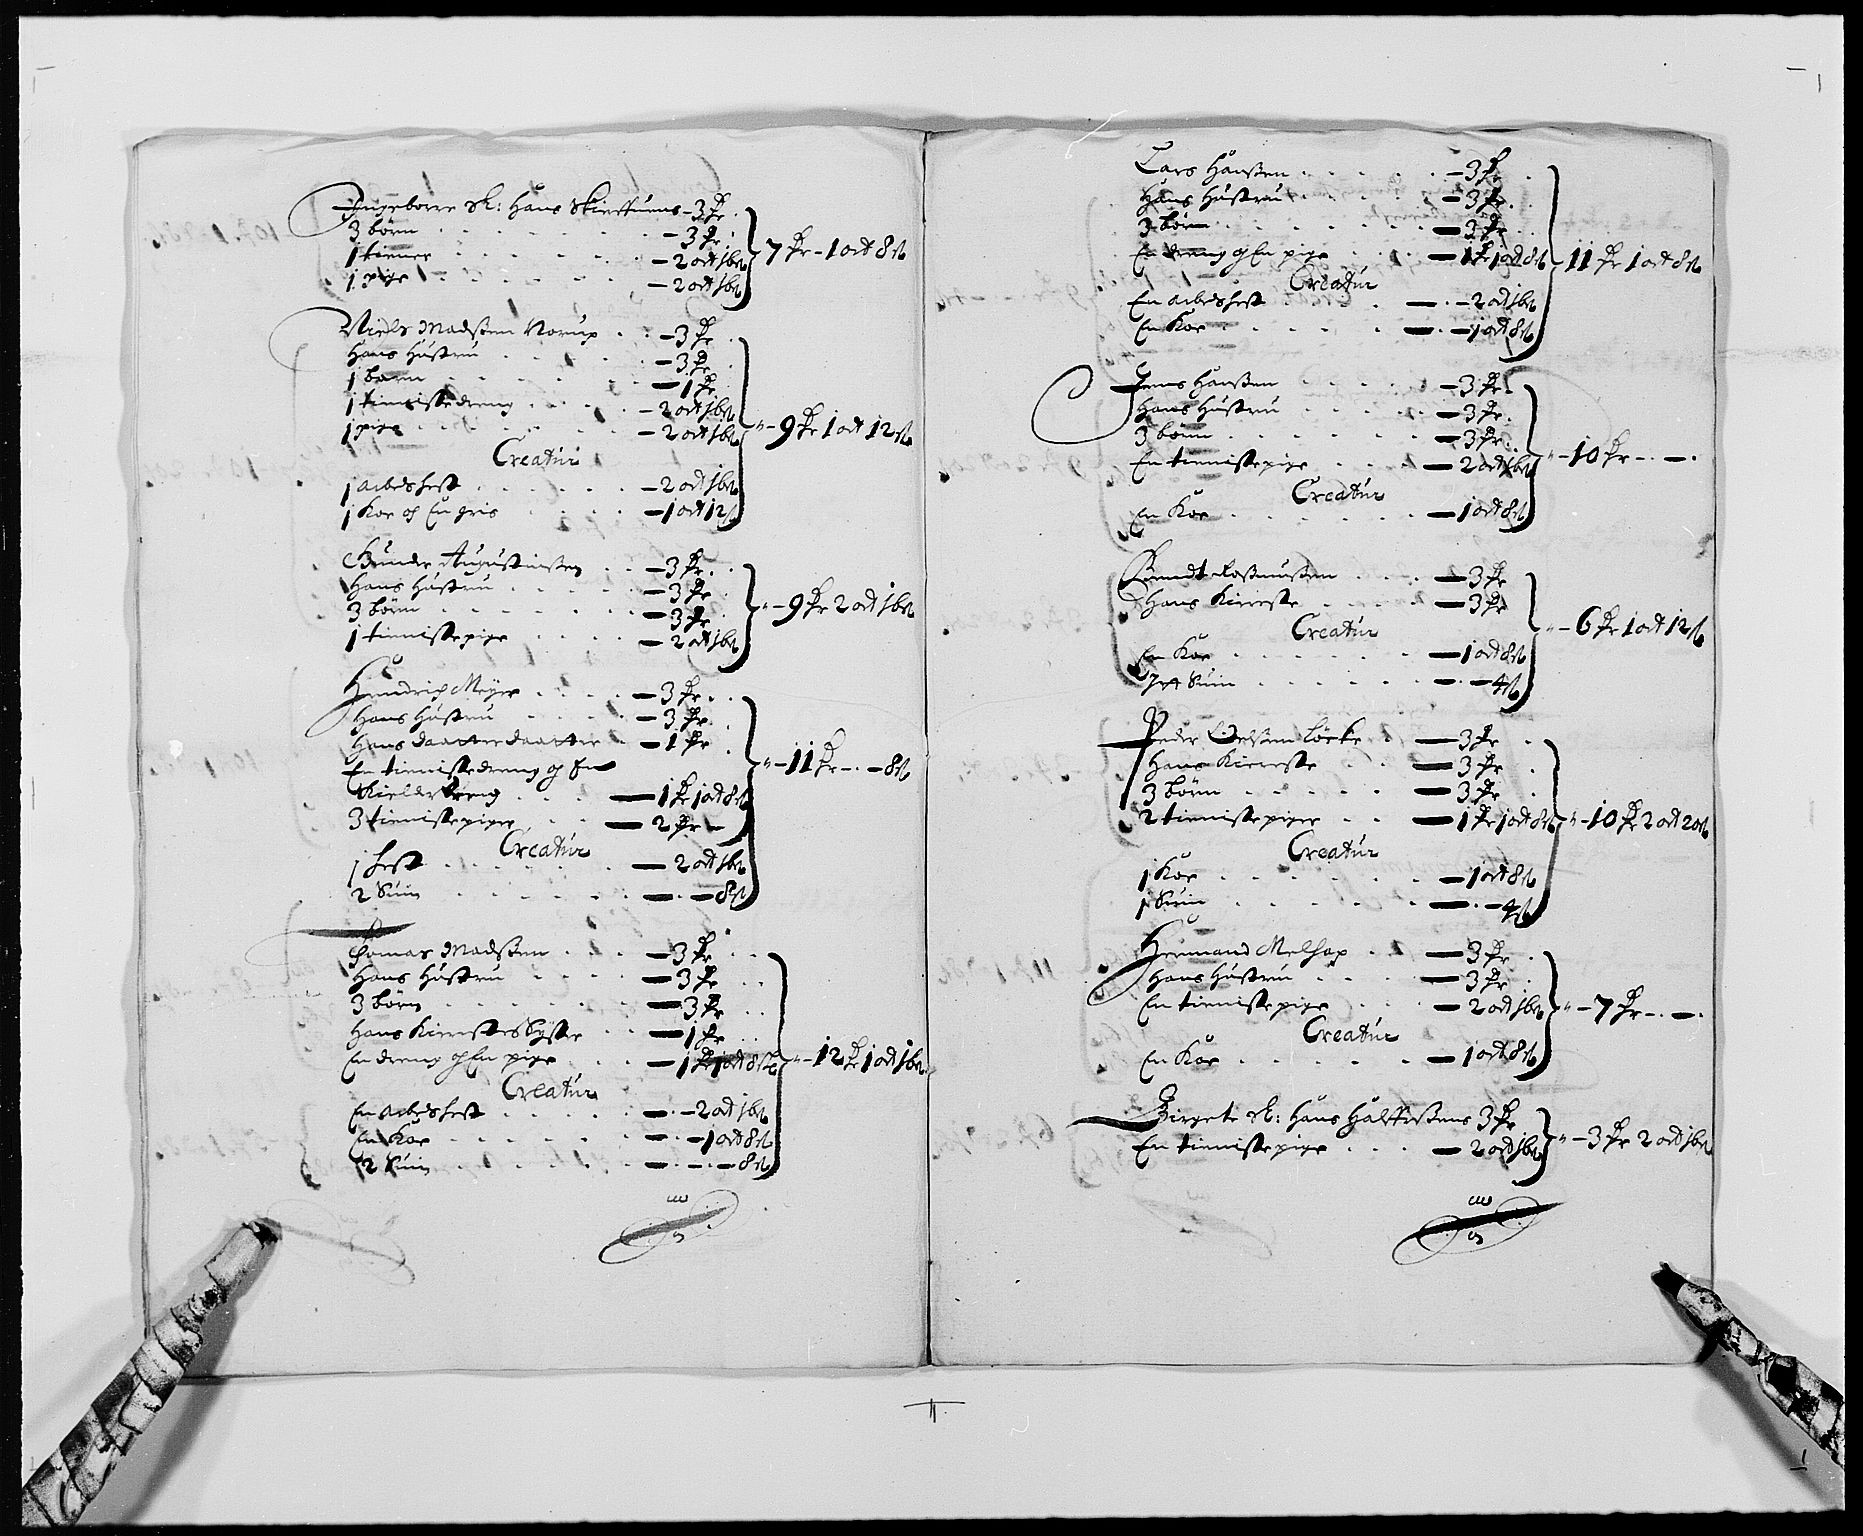 Ingeborre Sl: Hans Skreffuens - 3 Rr
3 börn - 3 Rr
1 tiener - 2 ort 16 ß
1 pige - 2 ort 16 ß
7 Rr - 1 ort 8 ß
Niels Madsen Norup - 3 Rr
Hans Hustru - 3 Rr
1 barn - 1 Rr
1 tienistedreng - 2 ort 16 ß
1 pige - 2 ort 16 ß
Creatur
1 arbedshest - 2 ort 16 ß
1 Koe og En gris - 1 ort 12 ß
- 9 Rr 1 ort 12 ß
Gunder Augustinsen - 3 Rr
Hans Hustru - 3 Rr
3 börn - 3 Rr
1 tienistepige - 2 ort 16 ß
- 9 Rr 2 ort 16 ß
Hendrich Meÿer - 3 Rr
Hans Hustru - 3 Rr
Hans daatterdaatter - 1 Rr
En tienistedreng og En
Kielderdreng - 1 Rr 1 ort 8 ß
3 tienistepiger - 2 Rr -
Creatur
1 hest - 2 ort 16 ß
2 Suin - - 8 ß
- 11 Rr - - 8 ß
Thomas Madsen - 3 Rr
Hans Hustru - 3 Rr
3 börn - 3 Rr
Hans Kieristes Syster - 1 Rr
En dreng og En pige - 1 Rr 1 ort 8 ß
Creatur
En arbedshest - - 2 ort 16 ß
En Koe - - 1 ort 8 ß
2 Suin - - - 8 ß
- 12 Rr 1 ort 16 ß
Lars Hansen - 3 Rr
Hans Hustru - 3 Rr
3 börn - 3 Rr
En dreng og En pige - 1 Rr 1 ort 8 ß
Creatur
En arbedshest - - 2 ort 16 ß
En Koe - - 1 ort 8 ß
11 Rr 1 ort 8 ß
Jens Hansen - 3 Rr
Hans Hustru - 3 Rr
3 börn - 3 Rr
En tienistepige - 2 ort 16 ß
Creatur
En Koe - 1 ort 8 ß
- 10 Rr - -
Berndt Rasmusen - 3 Rr
Hans Kieriste - 3 Rr
Creatur
En Koe - 1 ort 8 ß
Suin - - 4 ß
- 6 Rr 1 ort 12 ß
Peder Löcke - 3 Rr
Hans Kieriste - 3 Rr
3 börn - 3 Rr
2 tienistepiger - 1 Rr 1 ort 8 ß
Creatur
1 Koe - 1 ort 8 ß
1 Suin - - 4 ß
- 10 Rr 2 ort 20 ß
Hermand Melhop - 3 Rr
Hans Hustru - 3 Rr
En tienistepige - 2 ort 16 ß
Creatur
En Koe - 1 ort 8 ß
- 7 Rr - -
Birgete Sl: Hans Halffuersens 3 Rr
En tienistepige - 2 ort 16 ß
- 3 Rr 2 ort 16 ß